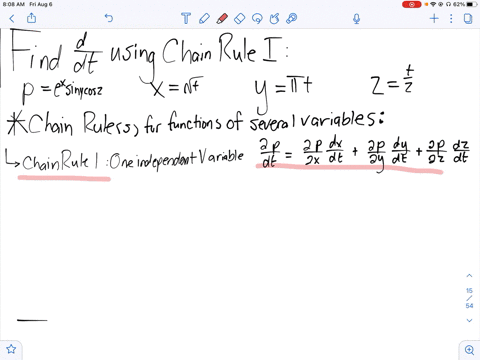 8:08 AM Fri Aug 6
62%
Find d/dt using Chain Rule I:
p = e^x siny cosz x = √t y = πt z = t/2
*Chain Rule(s) for functions of several variables:
↳ Chain Rule 1: One independent Variable ∂p/dt = ∂p/∂x dx/dt + ∂p/∂y dy/dt + ∂p/∂z dz/dt
15
/
54